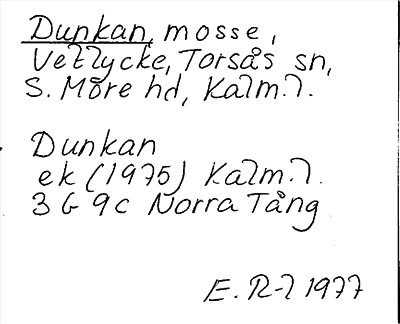 Dunkan, mosse,
Vetlycke, Torsås sn,
S. Möre hd, Kalm.l.
Dunkan
ek (1975) Kalm.l.
3 G 9c Norra Tång
E. R-l 1977